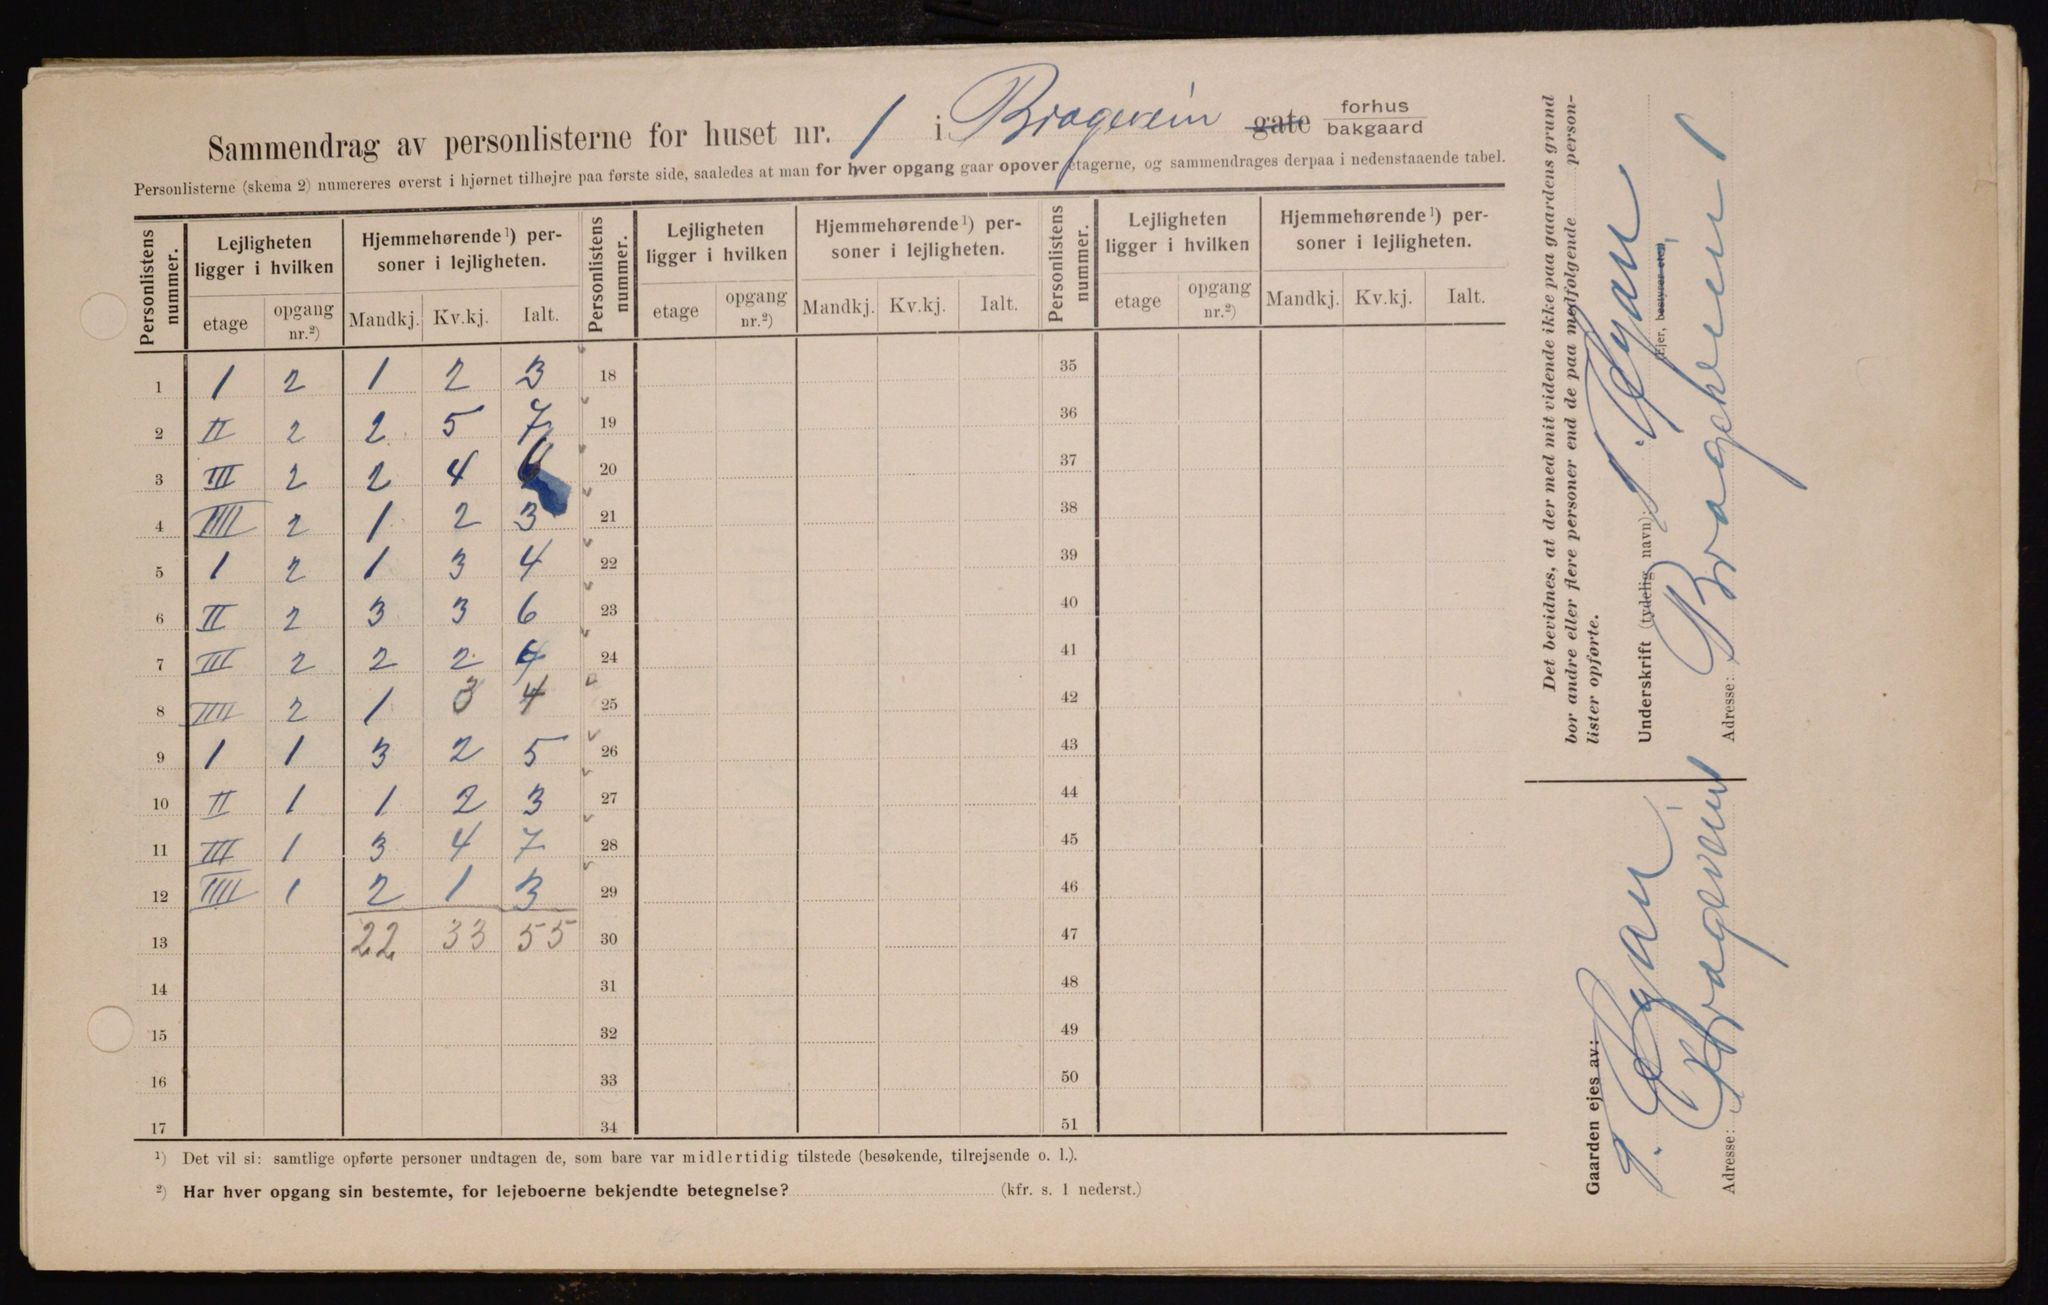 Sammendrag av personlisterne for huset nr. 1 i Bragevein gate forhus bakgaard
Personlisterne (skema 2) numereres øverst i hjørnet tilhøjre paa første side, saaledes at man for hver opgang gaar opover etagerne, og sammendrages derpaa i nedenstaaende tabel.
Personlistens nummer. Lejligheten ligger i hvilken Hjemmehørende¹) personer i lejligheten. Personlistens nummer. Lejligheten ligger i hvilken Hjemmehørende¹) personer i lejligheten. Personlistens nummer. Lejligheten ligger i hvilken Hjemmehørende¹) personer i lejligheten.
etage opgang nr.²) Mandkj. Kv.kj. Ialt. etage opgang nr.²) Mandkj. Kv.kj. Ialt. etage opgang nr.²) Mandkj. Kv.kj. Ialt.
1 1 2 1 2 3 18 35
2 II 2 2 5 7 19 36
3 III 2 2 4 6 20 37
4 IIII 2 1 2 3 21 38
5 1 2 1 3 4 22 39
6 II 2 3 3 6 23 40
7 III 2 2 2 4 24 41
8 IIII 2 1 3 4 25 42
9 1 1 3 2 5 26 43
10 II 1 1 2 3 27 44
11 III 1 3 4 7 28 45
12 IIII 1 2 1 3 29 46
13 22 33 55 30 47
14 31 48
15 32 49
16 33 50
17 34 51
¹) Det vil si: samtlige opførte personer undtagen de, som bare var midlertidig tilstede (besøkende, tilrejsende o. l.).
²) Har hver opgang sin bestemte, for lejeboerne bekjendte betegnelse? (kfr. s. 1 nederst.)
Det bevidnes, at der med mit vidende ikke paa gaardens grund
bor andre eller flere personer end de paa medfølgende personlister opførte.
Underskrift (tydelig navn):
(Ejer, bestyrer etc.)
Adresse: Bragevein 1
Gaarden ejes av:
Adresse: Bragevein 1